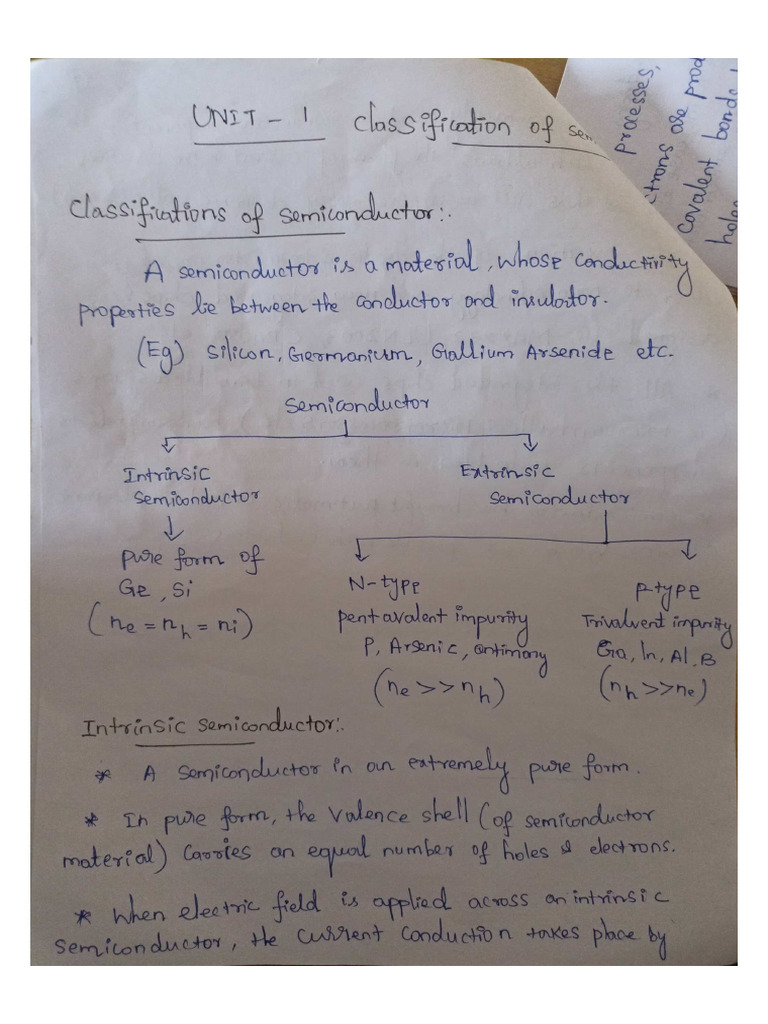 UNIT - 1 Classification of sem
processes,
ctrons are prod
covalent bonds
holes
Classifications of semiconductor:.
A semiconductor is a material, whose conductivity
properties lie between the conductor and insulator.
(Eg) Silicon, Germanium, Gallium Arsenide etc.
Semiconductor
Intrinsic semiconductor
Extrinsic semiconductor
pure form of
Ge, Si
(ne = nh = ni)
N-type
pentavalent impurity
P, Arsenic, antimony
(ne >> nh)
P-type
Trivalvent impurity
Ga, In, Al, B
(nh >> ne)
Intrinsic semiconductor:.
* A semiconductor in an extremely pure form.
* In pure form, the valence shell (of semiconductor
material) carries an equal number of holes & electrons.
* When electric field is applied across an intrinsic
semiconductor, the current conduction takes place by